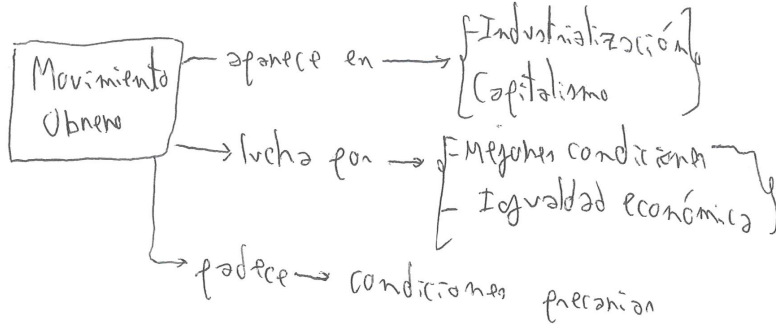 Movimiento
Obrero
aparece en
- Industrialización
Capitalismo
lucha por
- Mejores condiciones
- Igualdad económica
padece
condiciones precarias